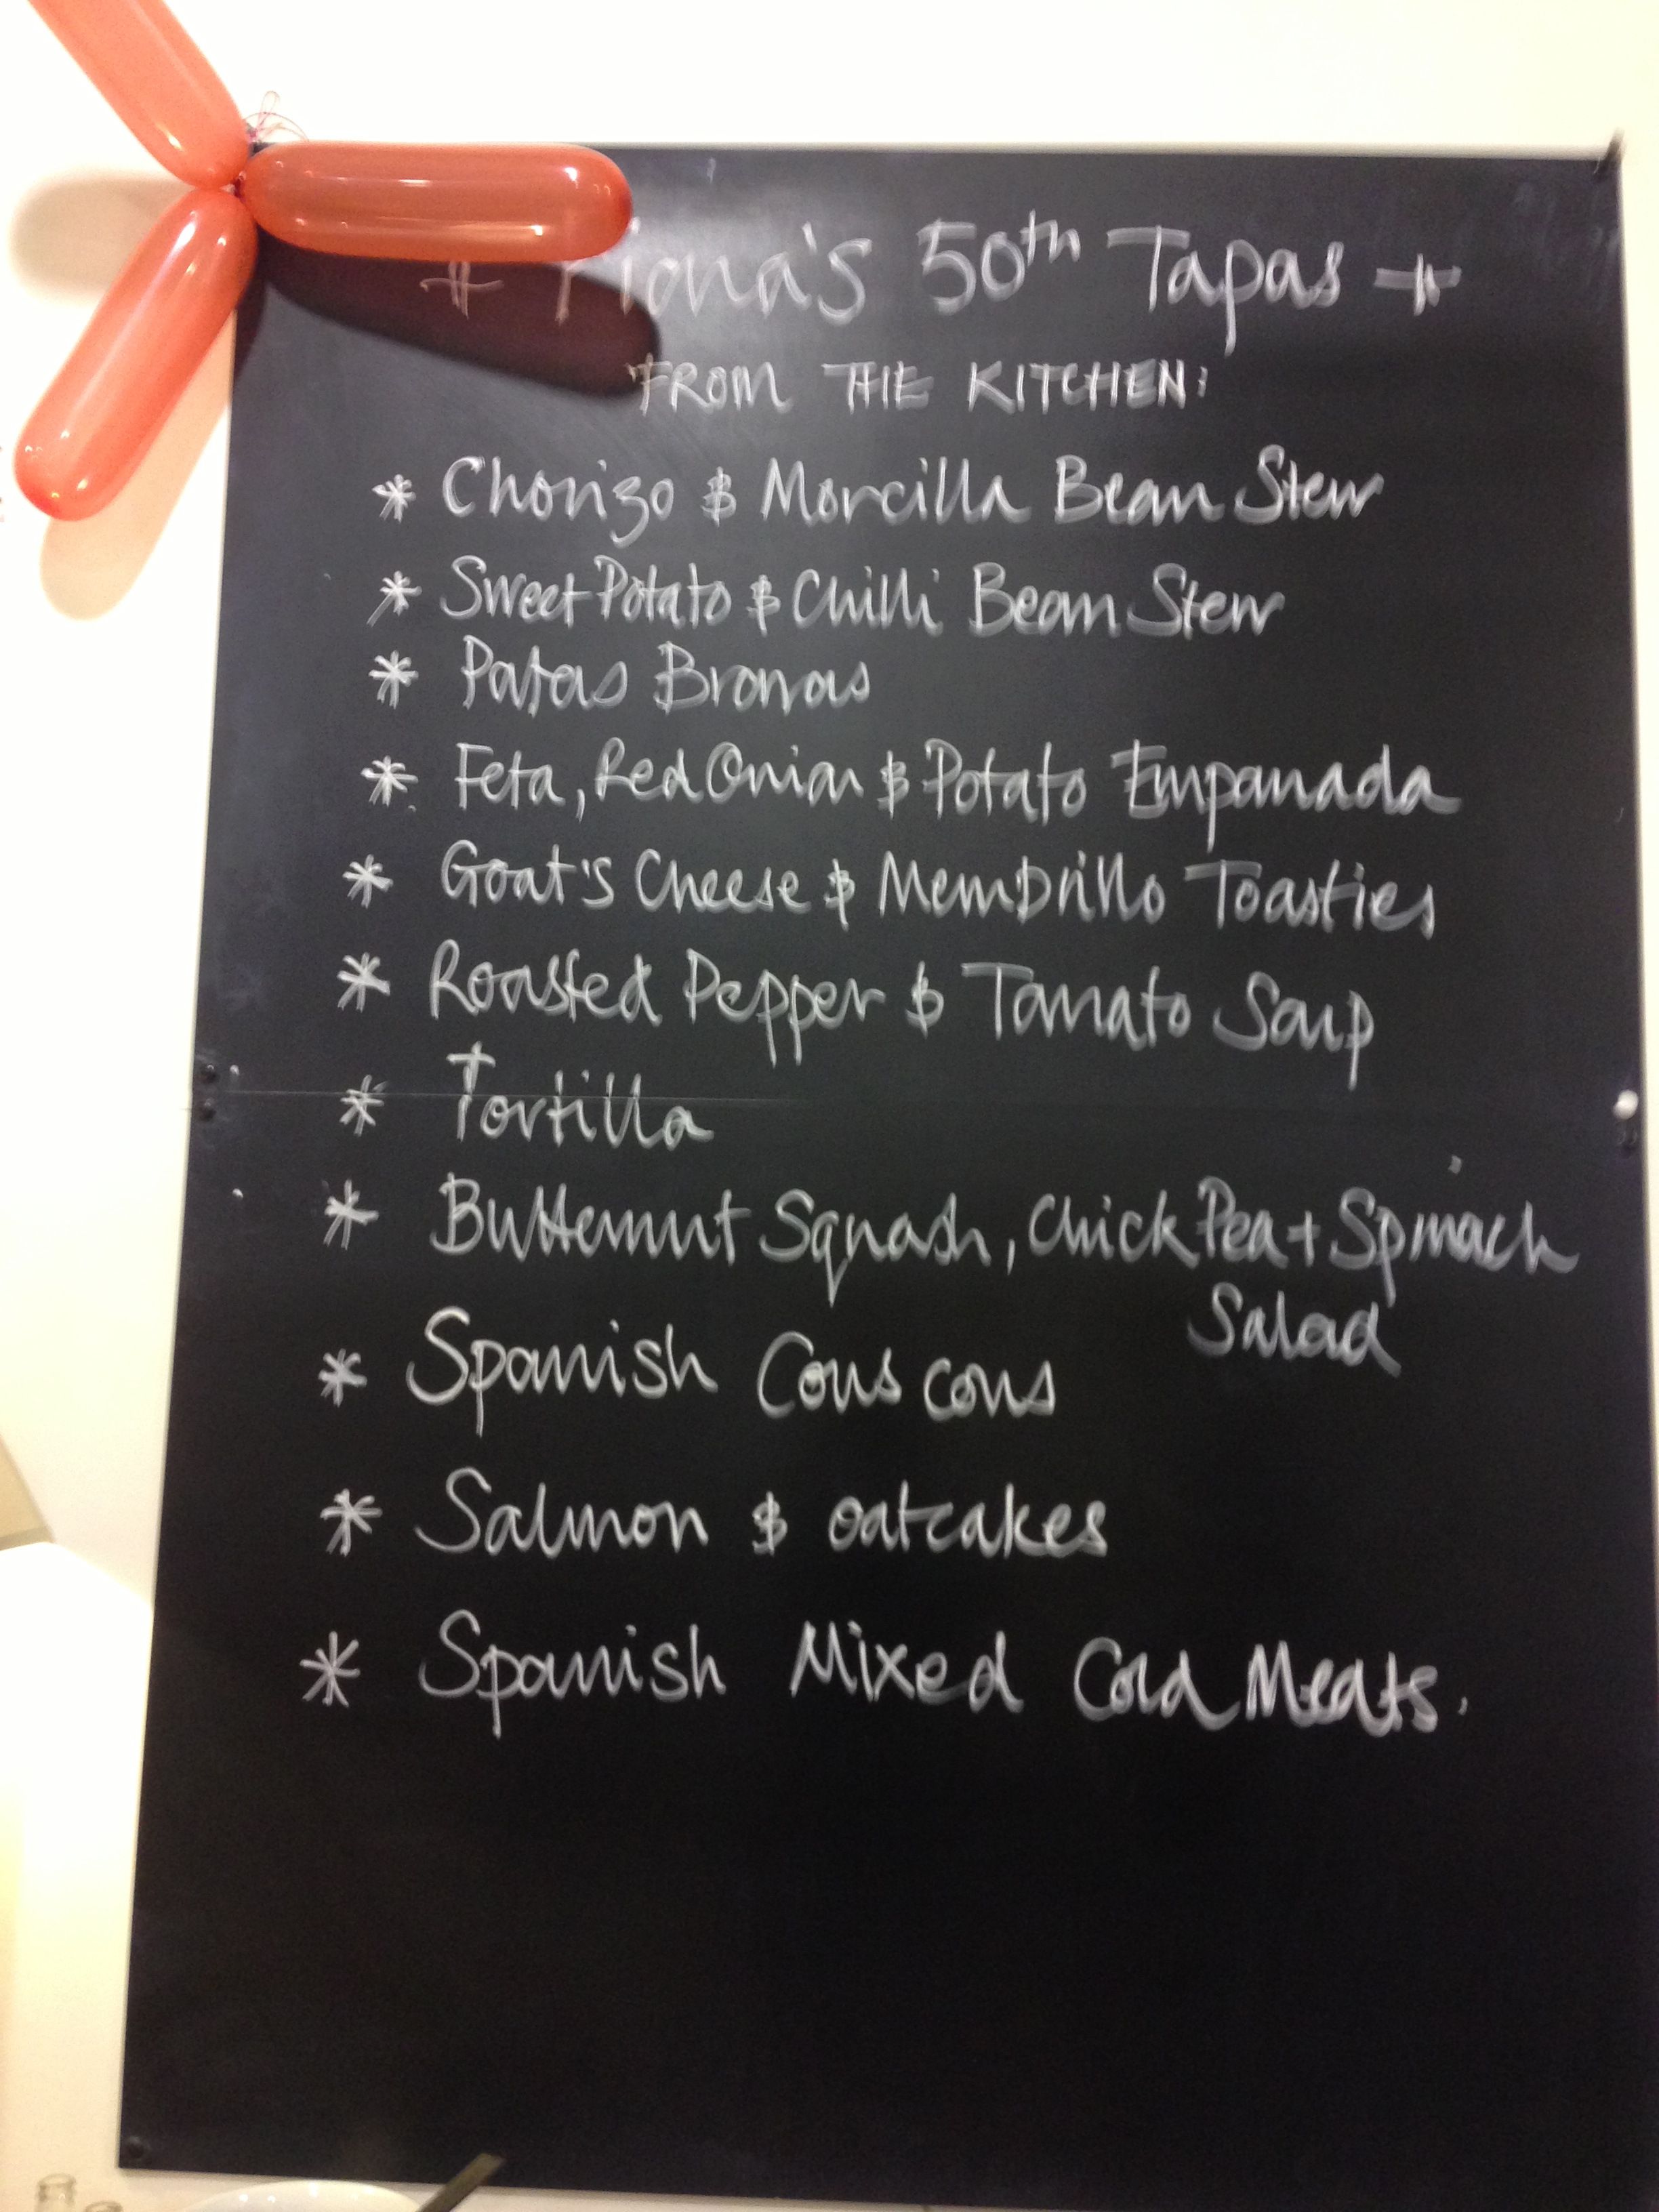 + Fiona's 50th Tapas +
FROM THE KITCHEN:
* Chorizo & Morcilla Bean Stew
* Sweet Potato & Chilli Bean Stew
* Patatas Bravas
* Feta, Red Onion & Potato Empanada
* Goat's Cheese & Membrillo Toasties
* Roasted Pepper & Tomato Soup
* Tortilla
* Butternut Squash, Chick Pea + Spinach
Salad
* Spanish Cous cous
* Salmon & oatcakes
* Spanish Mixed Cold Meats.